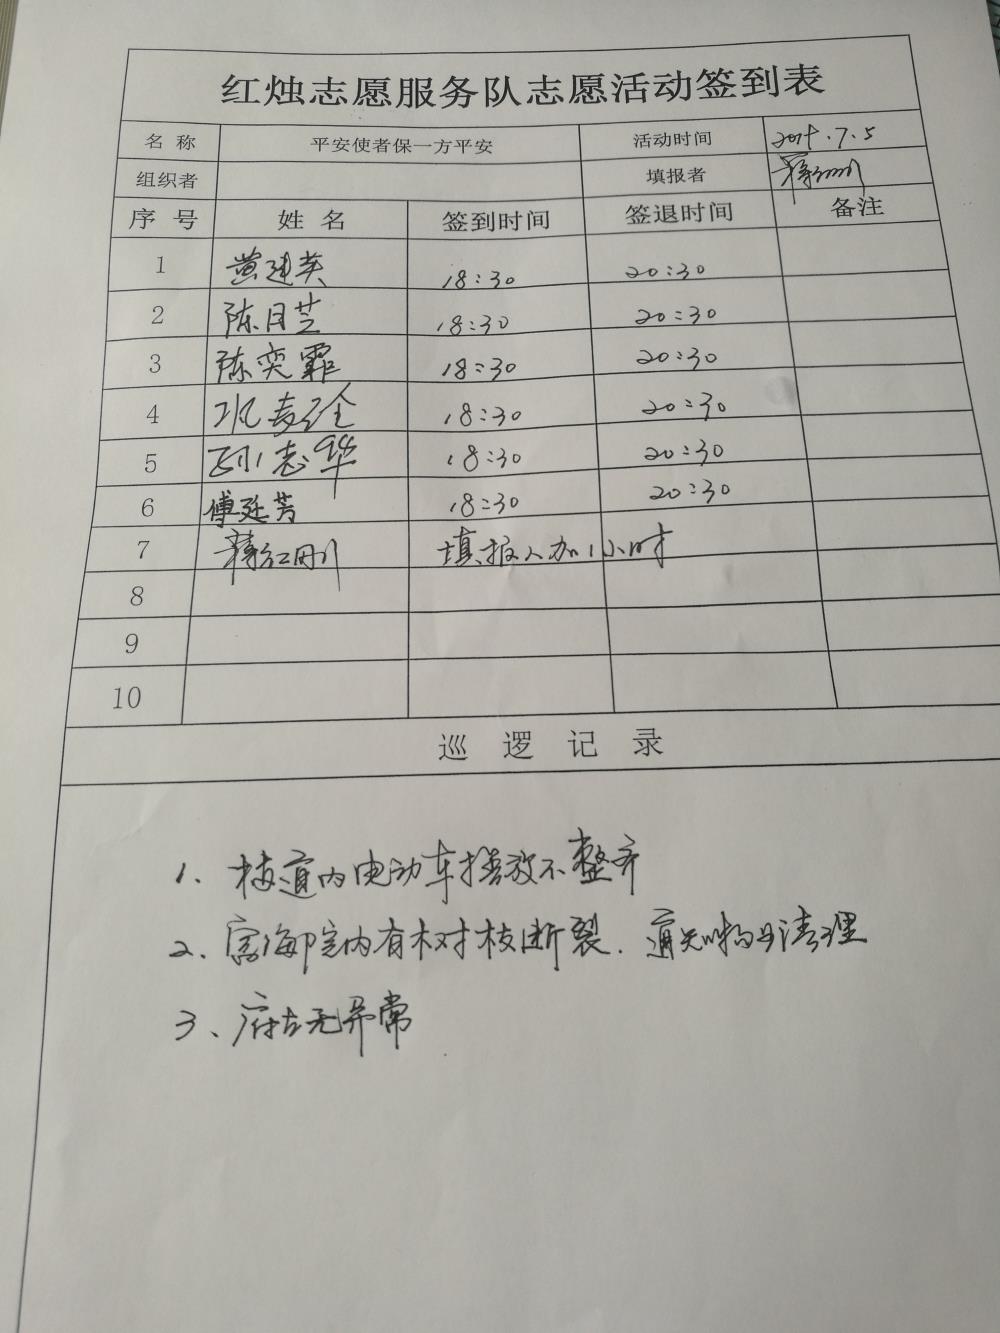 红烛志愿服务队志愿活动签到表
名称 平安使者保一方平安 活动时间 7.5
组织者 填报者
序号 姓名 签到时间 签退时间 备注
1 黄建英 18:30 20:30
2 陈月芝 18:30 20:30
3 陈奕霏 18:30 20:30
4 18:30 20:30
5 孙志华 18:30 20:30
6 傅延芳 18:30 20:30
7 蒋红刚 填报人加1小时
8
9
10
巡逻记录
1、楼道内电动车摆放不整齐
2、院内有树枝断裂.通知物业清理
3、无异常